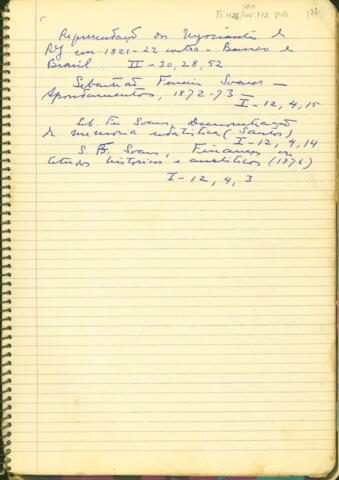 SBH
172
Representação dos negociantes do
RJ em 1821-22 contra o Banco do
Brasil. II - 30, 28, 52
Sebastião Ferreira Soares —
Apontamentos, 1872-73 —
I - 12, 4, 15
Seb. Fer Soares, Demonstração
de memoria estatistica (Santos)
I - 12, 4, 14
S. F. Soares, Finanças ou
Estudos historicos e analiticos (1876)
I - 12, 4, 3